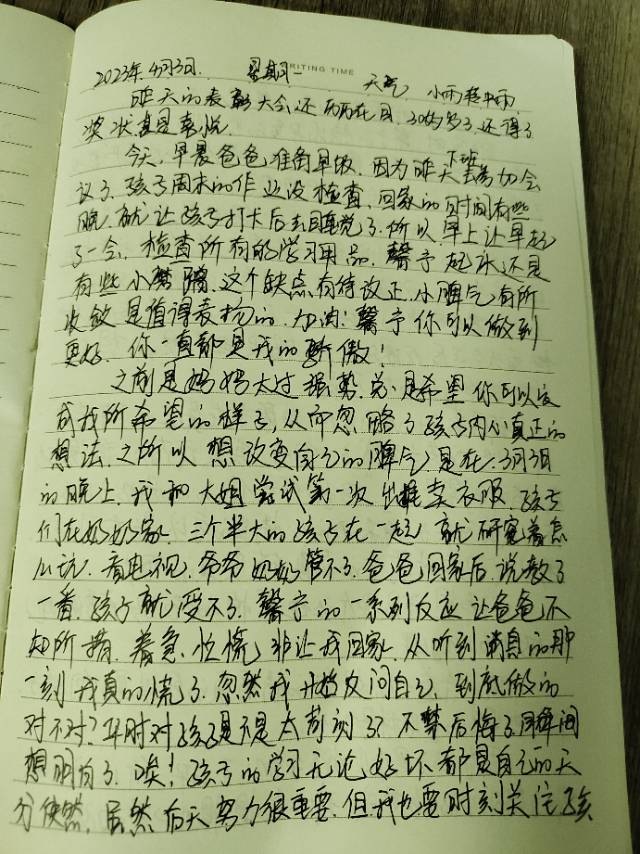 WRITING TIME
2023年4月3日. 星期一 天气 小雨转中雨
昨天的表彰大会还历历在目. 30的多了还得了
奖状真是喜悦.
今天. 早晨爸爸准备早饭. 因为昨天下班去参加会
议了. 孩子周末的作业没检查. 回家的时间有些
晚. 就让孩子打卡后去睡觉了. 所以. 早上让早起
了一会. 检查所有的学习用品. 馨予起床还是
有些小磨蹭. 这个缺点. 有待改正. 小脾气有所
收敛是值得表扬的. 加油! 馨予你可以做到
更好. 你一直都是我的骄傲!
之前是妈妈太过强势. 总是希望你可以变
成我所希望的样子, 从而忽略了孩子内心真正的
想法. 之所以想改变自己的脾气是在3月3日
的晚上. 我和大姐尝试第一次出摊卖衣服. 孩子
们在奶奶家. 三个半大的孩子在一起 就研究着怎
么玩. 看电视. 爷爷奶奶管不了. 爸爸回家后说教了
一番. 孩子就受不了. 馨予的一系列反应让爸爸不
知所措. 着急. 忙慌 非让我回家. 从听到消息的那
一刻我真的慌了. 忽然我开始反问自己. 到底做的
对不对? 平时对孩子是不是太苛刻了? 不禁后悔了. 瞬间
想明白了. 唉! 孩子的学习无论好坏都是自己的天
分使然. 居然后天努力很重要. 但我也要时刻关注孩